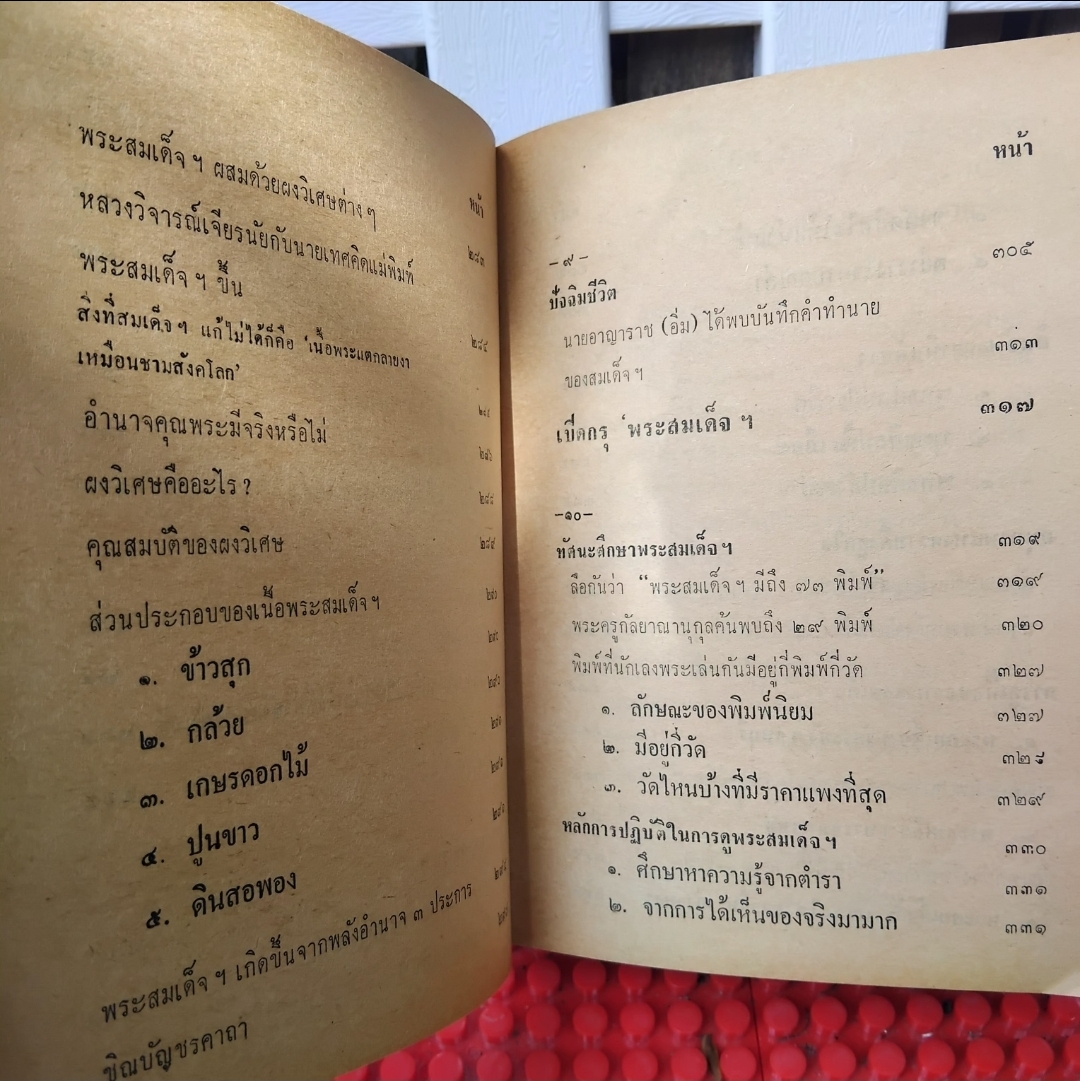 หน้า
พระสมเด็จ ฯ ผสมด้วยผงวิเศษต่าง ๆ ๒๘๓
หลวงวิจารณ์เจียรนัยกับนายเทศคิดแม่พิมพ์
พระสมเด็จ ฯ ขึ้น ๒๘๔
สิ่งที่สมเด็จ ฯ แก้ไม่ได้ก็คือ 'เนื้อพระแตกลายงา
เหมือนชามสังคโลก'
อำนาจคุณพระมีจริงหรือไม่
ผงวิเศษคืออะไร ? ๒๘๘
คุณสมบัติของผงวิเศษ
ส่วนประกอบของเนื้อพระสมเด็จ ฯ
๑. ข้าวสุก
๒. กล้วย
๓. เกษรดอกไม้
๔. ปูนขาว
๕. ดินสอพอง
พระสมเด็จ ฯ เกิดขึ้นจากพลังอำนาจ ๓ ประการ
ชิณบัญชรคาถา
หน้า
–๙–
ปัจฉิมชีวิต ๓๐๕
นายอาญาราช (อิ่ม) ได้พบบันทึกคำทำนาย
ของสมเด็จ ฯ ๓๑๓
เปิดกรุ 'พระสมเด็จ ฯ ๓๑๗
–๑๐–
ทัศนะศึกษาพระสมเด็จ ฯ ๓๑๙
ลือกันว่า “พระสมเด็จ ฯ มีถึง ๗๓ พิมพ์” ๓๑๙
พระครูกัลยาณานุกุลค้นพบถึง ๒๙ พิมพ์ ๓๒๐
พิมพ์ที่นักเลงพระเล่นกันมีอยู่กี่พิมพ์กี่วัด ๓๒๗
๑. ลักษณะของพิมพ์นิยม ๓๒๗
๒. มีอยู่กี่วัด ๓๒๘
๓. วัดไหนบ้างที่มีราคาแพงที่สุด ๓๒๙
หลักการปฏิบัติในการดูพระสมเด็จ ฯ ๓๓๐
๑. ศึกษาหาความรู้จากตำรา ๓๓๑
๒. จากการได้เห็นของจริงมามาก ๓๓๑